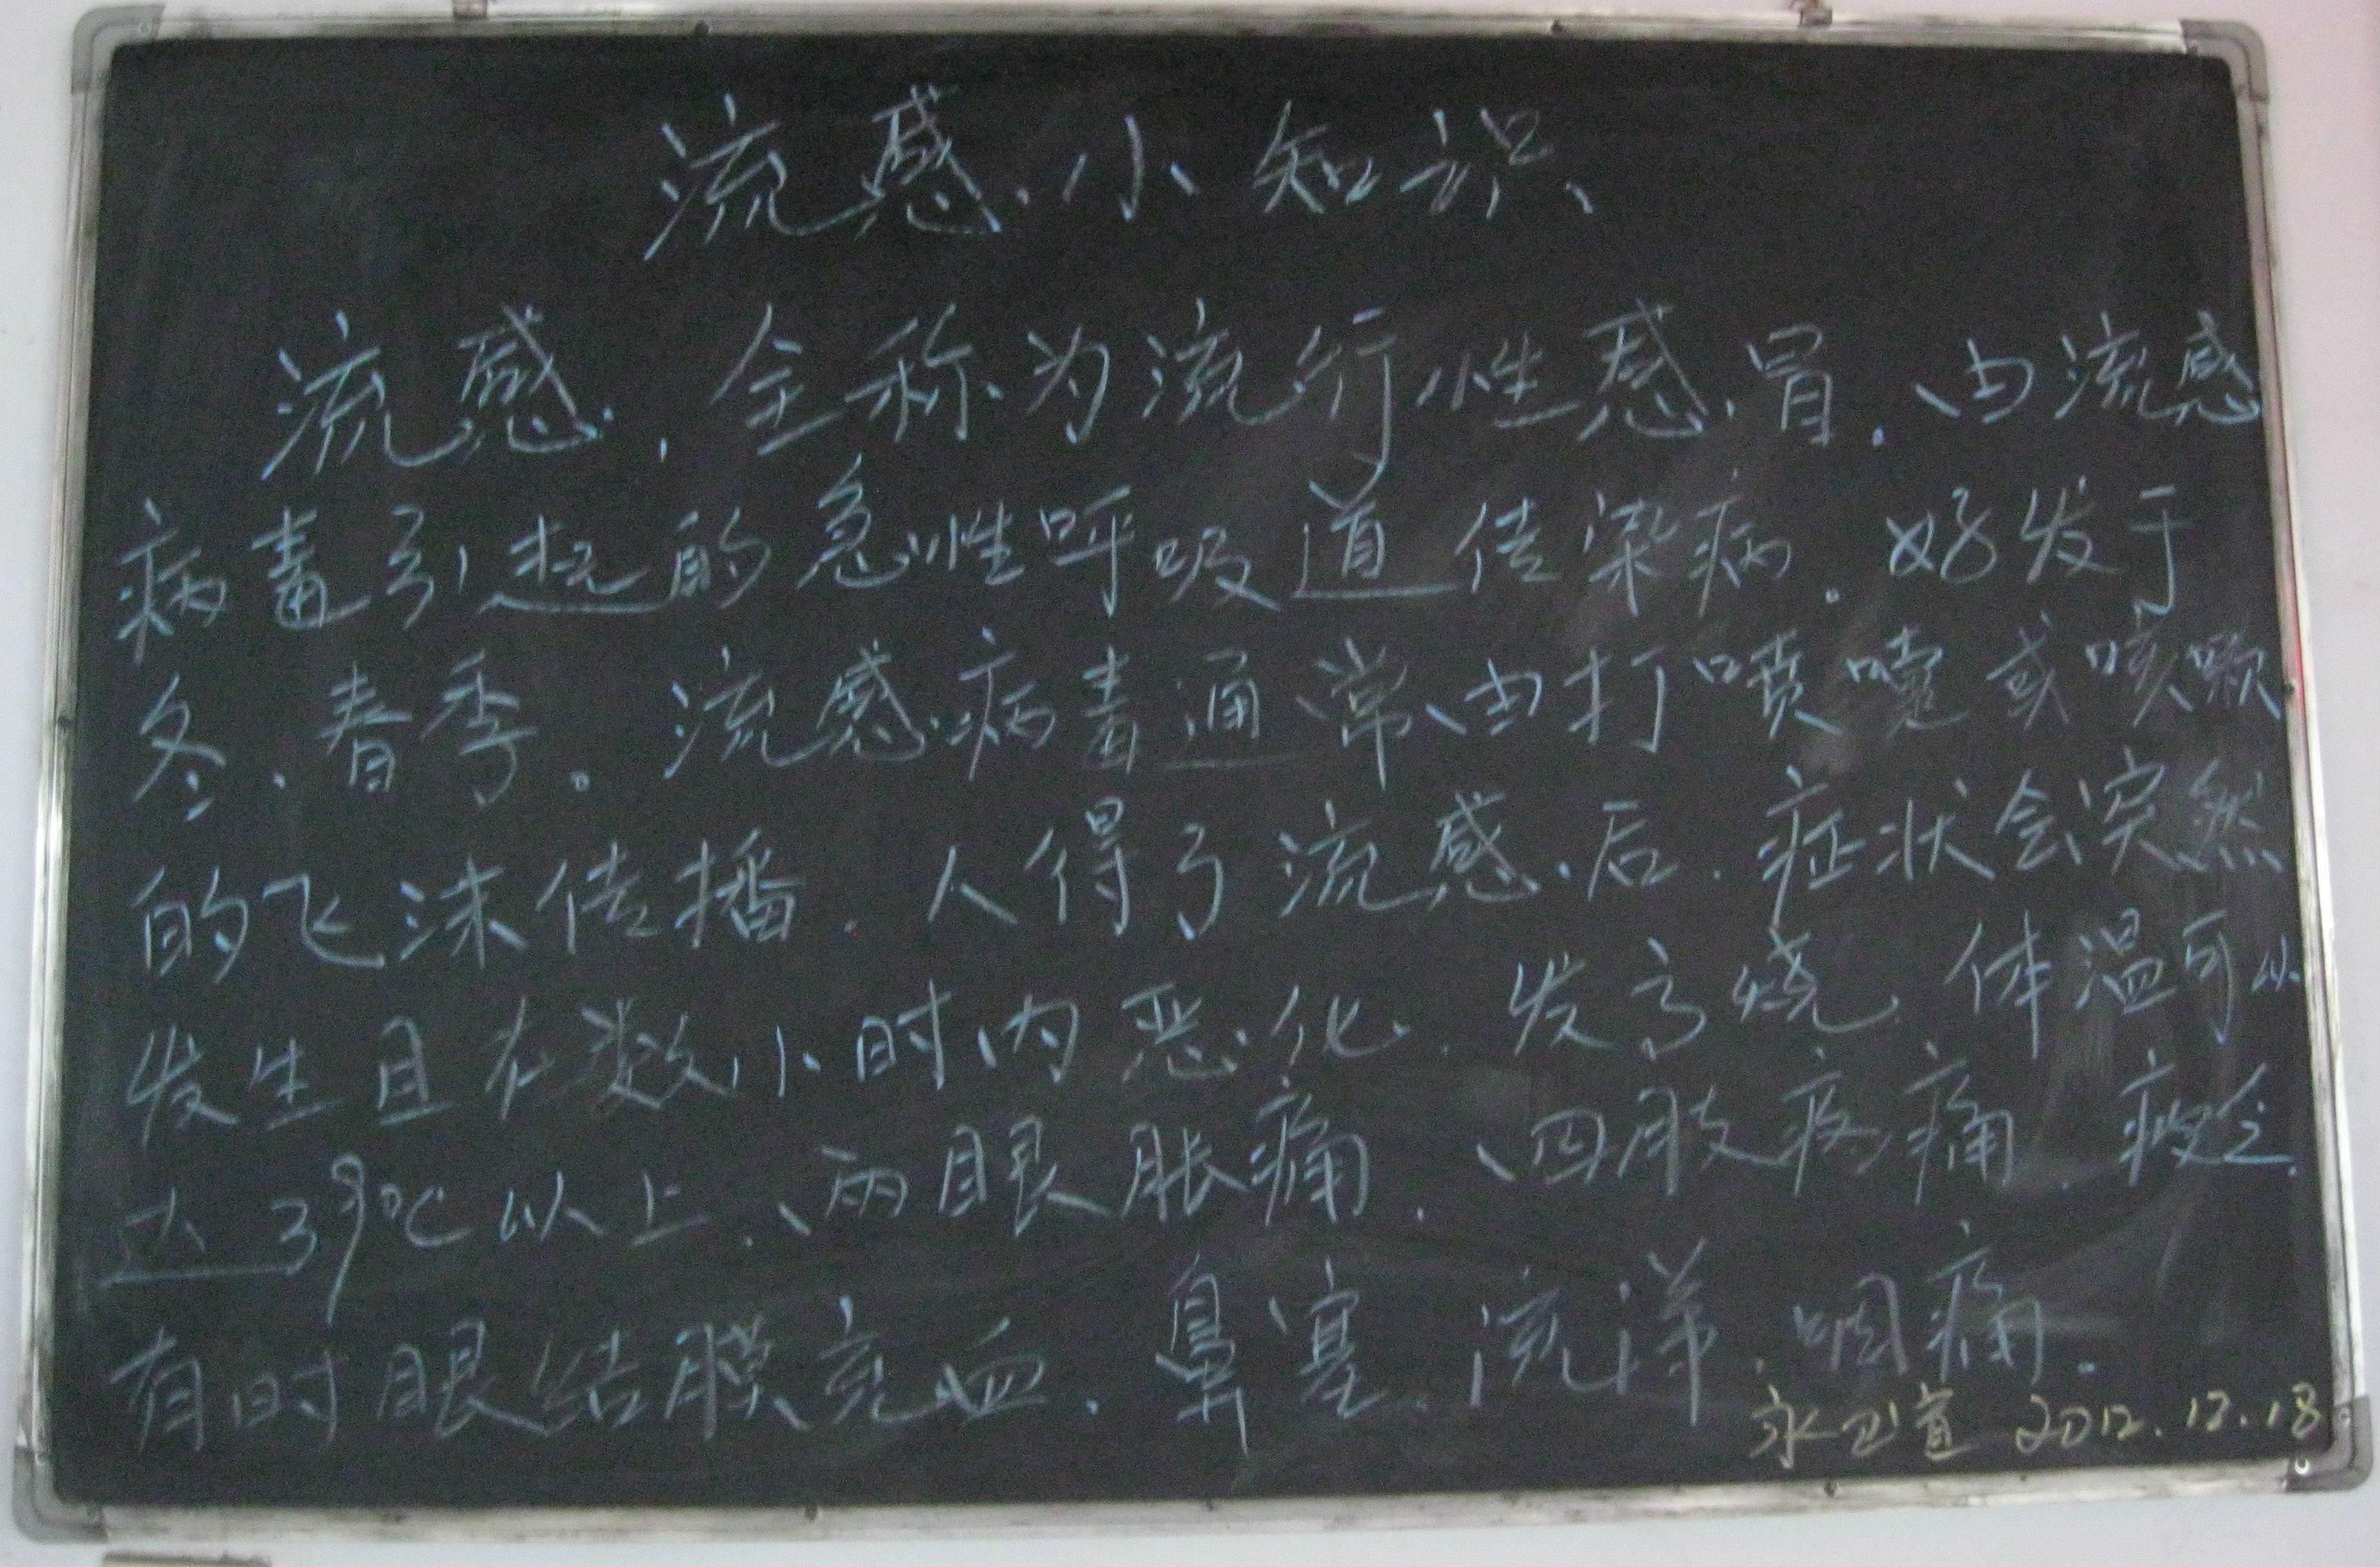 流感小知识
流感，全称为流行性感冒，由流感
病毒引起的急性呼吸道传染病。好发于
冬、春季。流感病毒通常由打喷嚏或咳嗽
的飞沫传播，人得了流感后，症状会突然
发生且在数小时内恶化，发高烧，体温可以
达39℃以上、两眼胀痛、四肢疼痛、疲乏、
有时眼结膜充血、鼻塞、流涕、咽痛。
永卫宣 2012.12.18